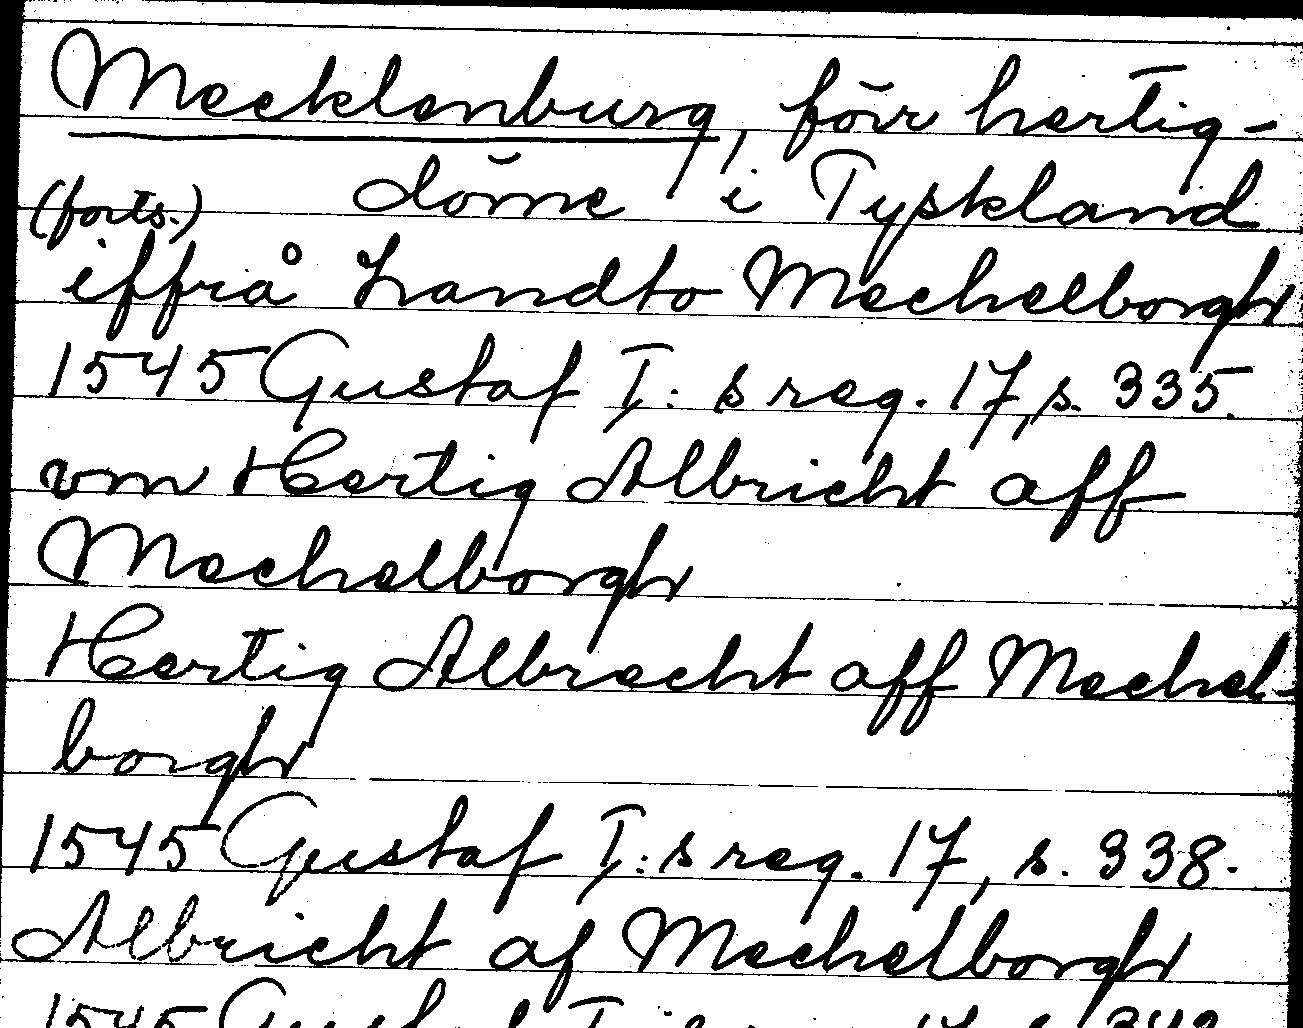 Mecklenburg, förr hertig-
(forts.) döme i Tyskland
iffrå Landto Mechelborgh
1545 Gustaf I:s reg. 17, s. 335.
om Hertig Albricht aff
Mechelborgh
Hertig Albrecht aff Mechel-
borgh
1545 Gustaf I:s reg. 17, s. 338.
Albricht af Mechelborgh
1545 Gustaf I:s reg. 17, s. 342